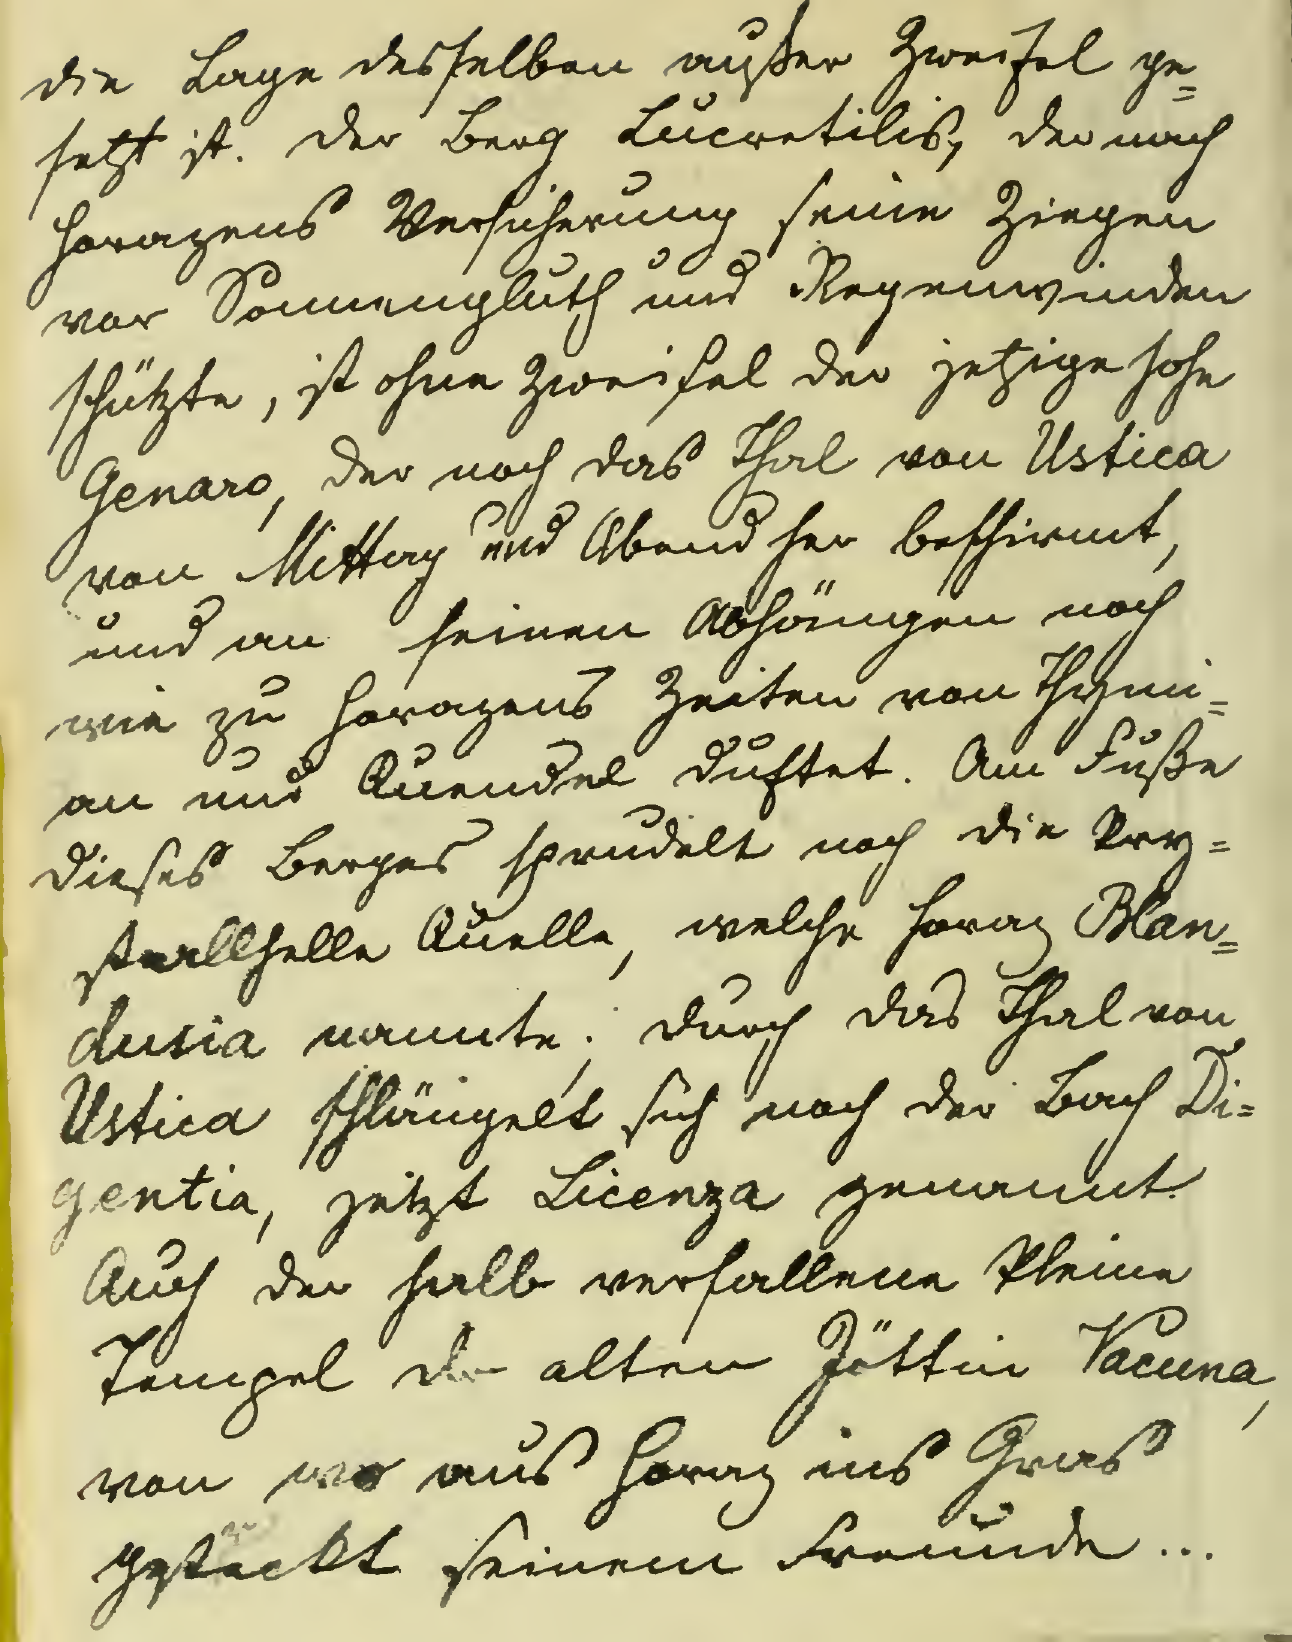 die Lage desselben außer Zweifel ge=
setzt ist. Der Berg Lucretilis, der nach
Horazens Versicherung seine Ziegen
vor Sonnengluth und Regenwinden
schützte, ist ohne Zweifel der jetzige hohe
Genaro, der noch das Thal von Ustica
von Mittag und Abend her beschirmt,
und an seinen Abhängen noch
wie zu Horazens Zeiten von Thymi=
an und Quendel duftet. Am Fuße
dieses Berges sprudelt noch die kry=
stallhelle Quelle, welche Horaz Blan=
dusia nannte; durch das Thal von
Ustica schlängelt sich noch der Bach Di=
gentia, jetzt Licenza genannt.
Auch der halb verfallene kleine
Tempel der alten Göttin Vacuna,
von wo aus Horaz ins Gras
gestreckt seinem Freunde ...